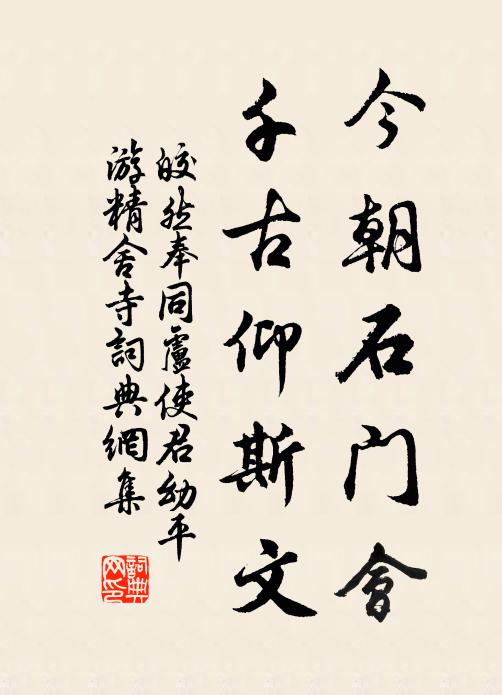 今朝石门會
千古仰斯文
皎然奉同盧使君幼平
游精舍寺詞典網集
詞典网印